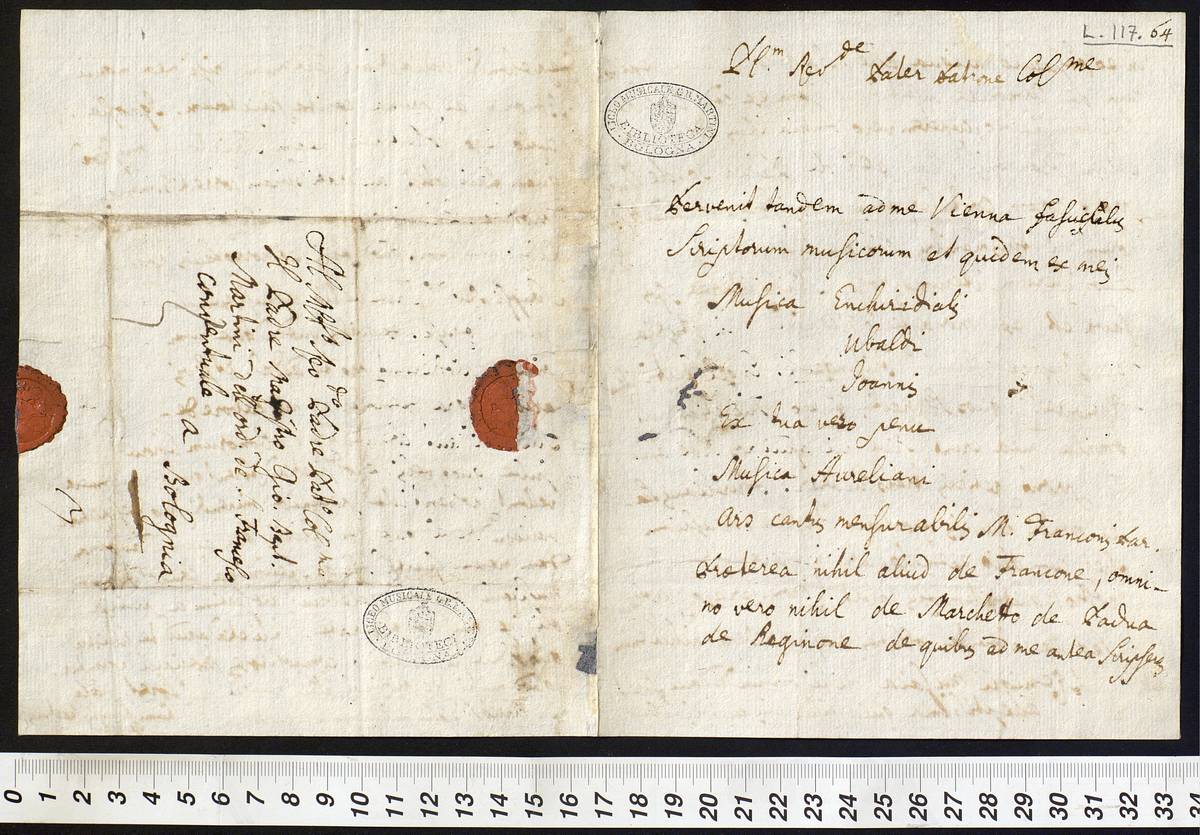 L. 117. 64
Pl.m Rev.de Pater Patrone Col.me
LICEO MUSICALE G.B. MARTINI
BIBLIOTECA
BOLOGNA
Pervenit tandem ad me Vienna
Scriptorum musicorum et quidem ex meis
Musica Enchiriadis
Ubaldi
Joannis
Ex tua vero penu
Musica Aureliani
Ars cantus mensurabilis M. Franconis Par.
Præterea nihil aliud de Francone, omni-
no vero nihil de Marchetto de Padua
de Reginone de quibus ad me antea
Al Padre
Il Padre Maestro Gio. Batt.
Martini dell'ord. de S. Francesco
Conventuale a
Bolognia
LICEO MUSICALE
BIBLIOTECA
0 1 2 3 4 5 6 7 8 9 10 11 12 13 14 15 16 17 18 19 20 21 22 23 24 25 26 27 28 29 30 31 32 33